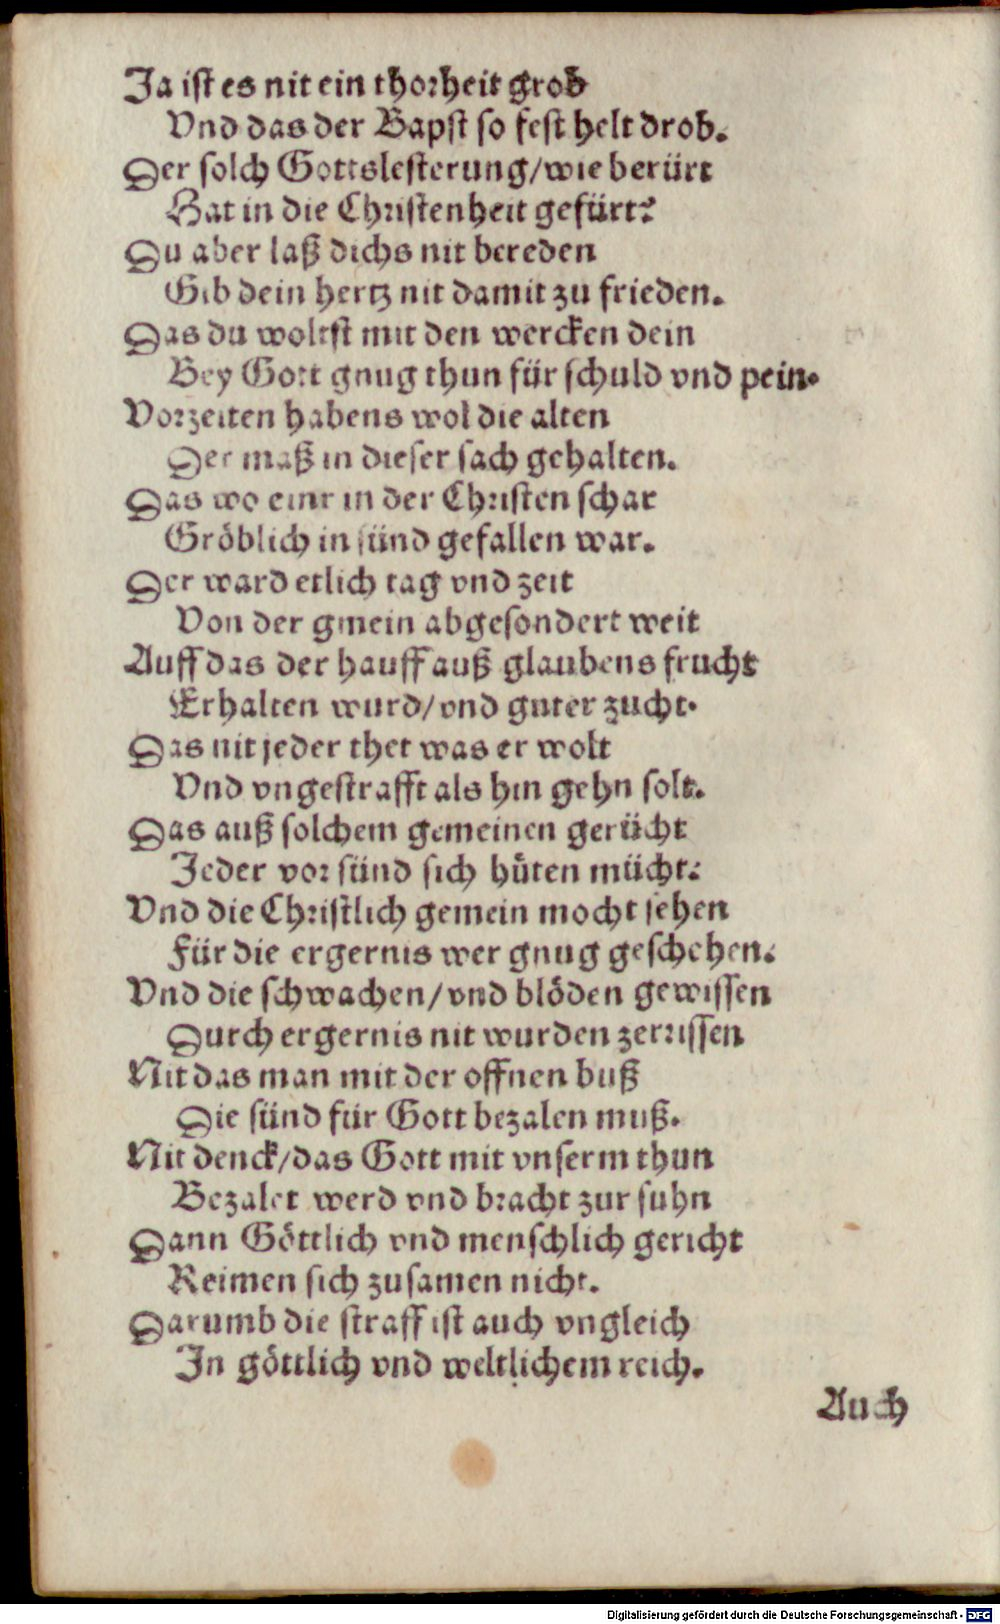 Ja ist es nit ein thorheit grob
Vnd das der Bapst so fest helt drob.
Der solch Gottslesterung/wie berürt
Hat in die Christenheit gefürt?
Du aber laß dichs nit bereden
Gib dein hertz nit damit zu frieden.
Das du woltst mit den wercken dein
Bey Gott gnug thun für schuld vnd pein.
Vorzeiten habens wol die alten
Der maß in dieser sach gehalten.
Das wo einr in der Christen schar
Gröblich in sünd gefallen war.
Der ward etlich tag vnd zeit
Von der gmein abgesondert weit
Auff das der hauff auß glaubens frucht
Erhalten wurd/vnd guter zucht.
Das nit jeder thet was er wolt
Vnd vngestrafft als hin gehn solt.
Das auß solchem gemeinen gerücht
Jeder vor sünd sich hüten mücht:
Vnd die Christlich gemein mocht sehen
Für die ergernis wer gnug geschehen.
Vnd die schwachen/vnd blöden gewissen
Durch ergernis nit wurden zerrissen
Nit das man mit der offnen buß
Die sünd für Gott bezalen muß.
Nit denck/das Gott mit vnserm thun
Bezalet werd vnd bracht zur suhn
Dann Göttlich vnd menschlich gericht
Reimen sich zusamen nicht.
Darumb die straff ist auch vngleich
In göttlich vnd weltlichem reich.
Auch
Digitalisierung gefördert durch die Deutsche Forschungsgemeinschaft - DFG